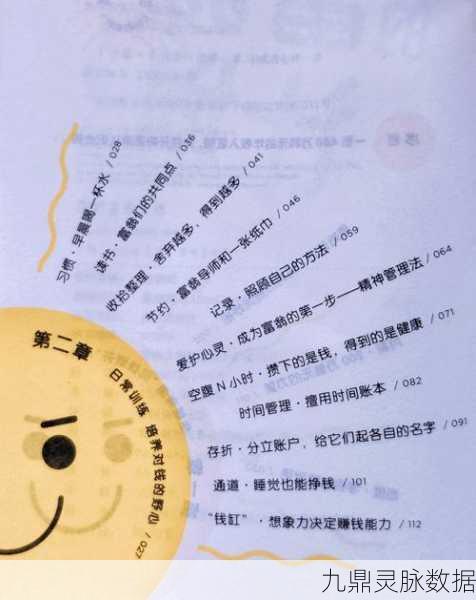 第二章
日常训练 培养对钱的野心 / 027
习惯·早晨喝一杯水 / 028
读书·富翁们的共同点 / 036
收拾整理·舍弃越多，得到越多 / 041
节约·富翁导师和一张纸巾 / 046
记录·照顾自己的方法 / 059
爱护心灵·成为富翁的第一步——精神管理法 / 064
空腹N小时·攒下的是钱，得到的是健康 / 071
时间管理·擅用时间账本 / 082
存折·分立账户，给它们起各自的名字 / 091
通道·睡觉也能挣钱 / 101
“钱缸”·想象力决定赚钱能力 / 112
九鼎灵脉数据